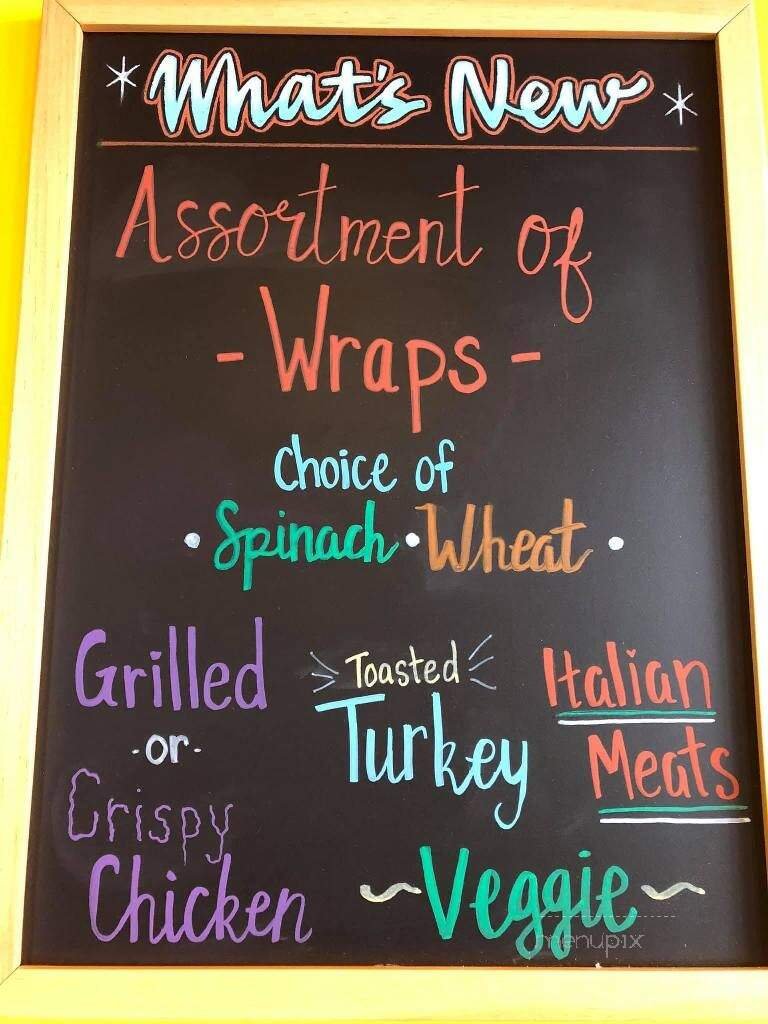 What's New
Assortment of
- Wraps -
Choice of
• Spinach • Wheat •
Grilled
-or-
Crispy
Chicken
Toasted
Turkey
Italian
Meats
~Veggie~
menupix